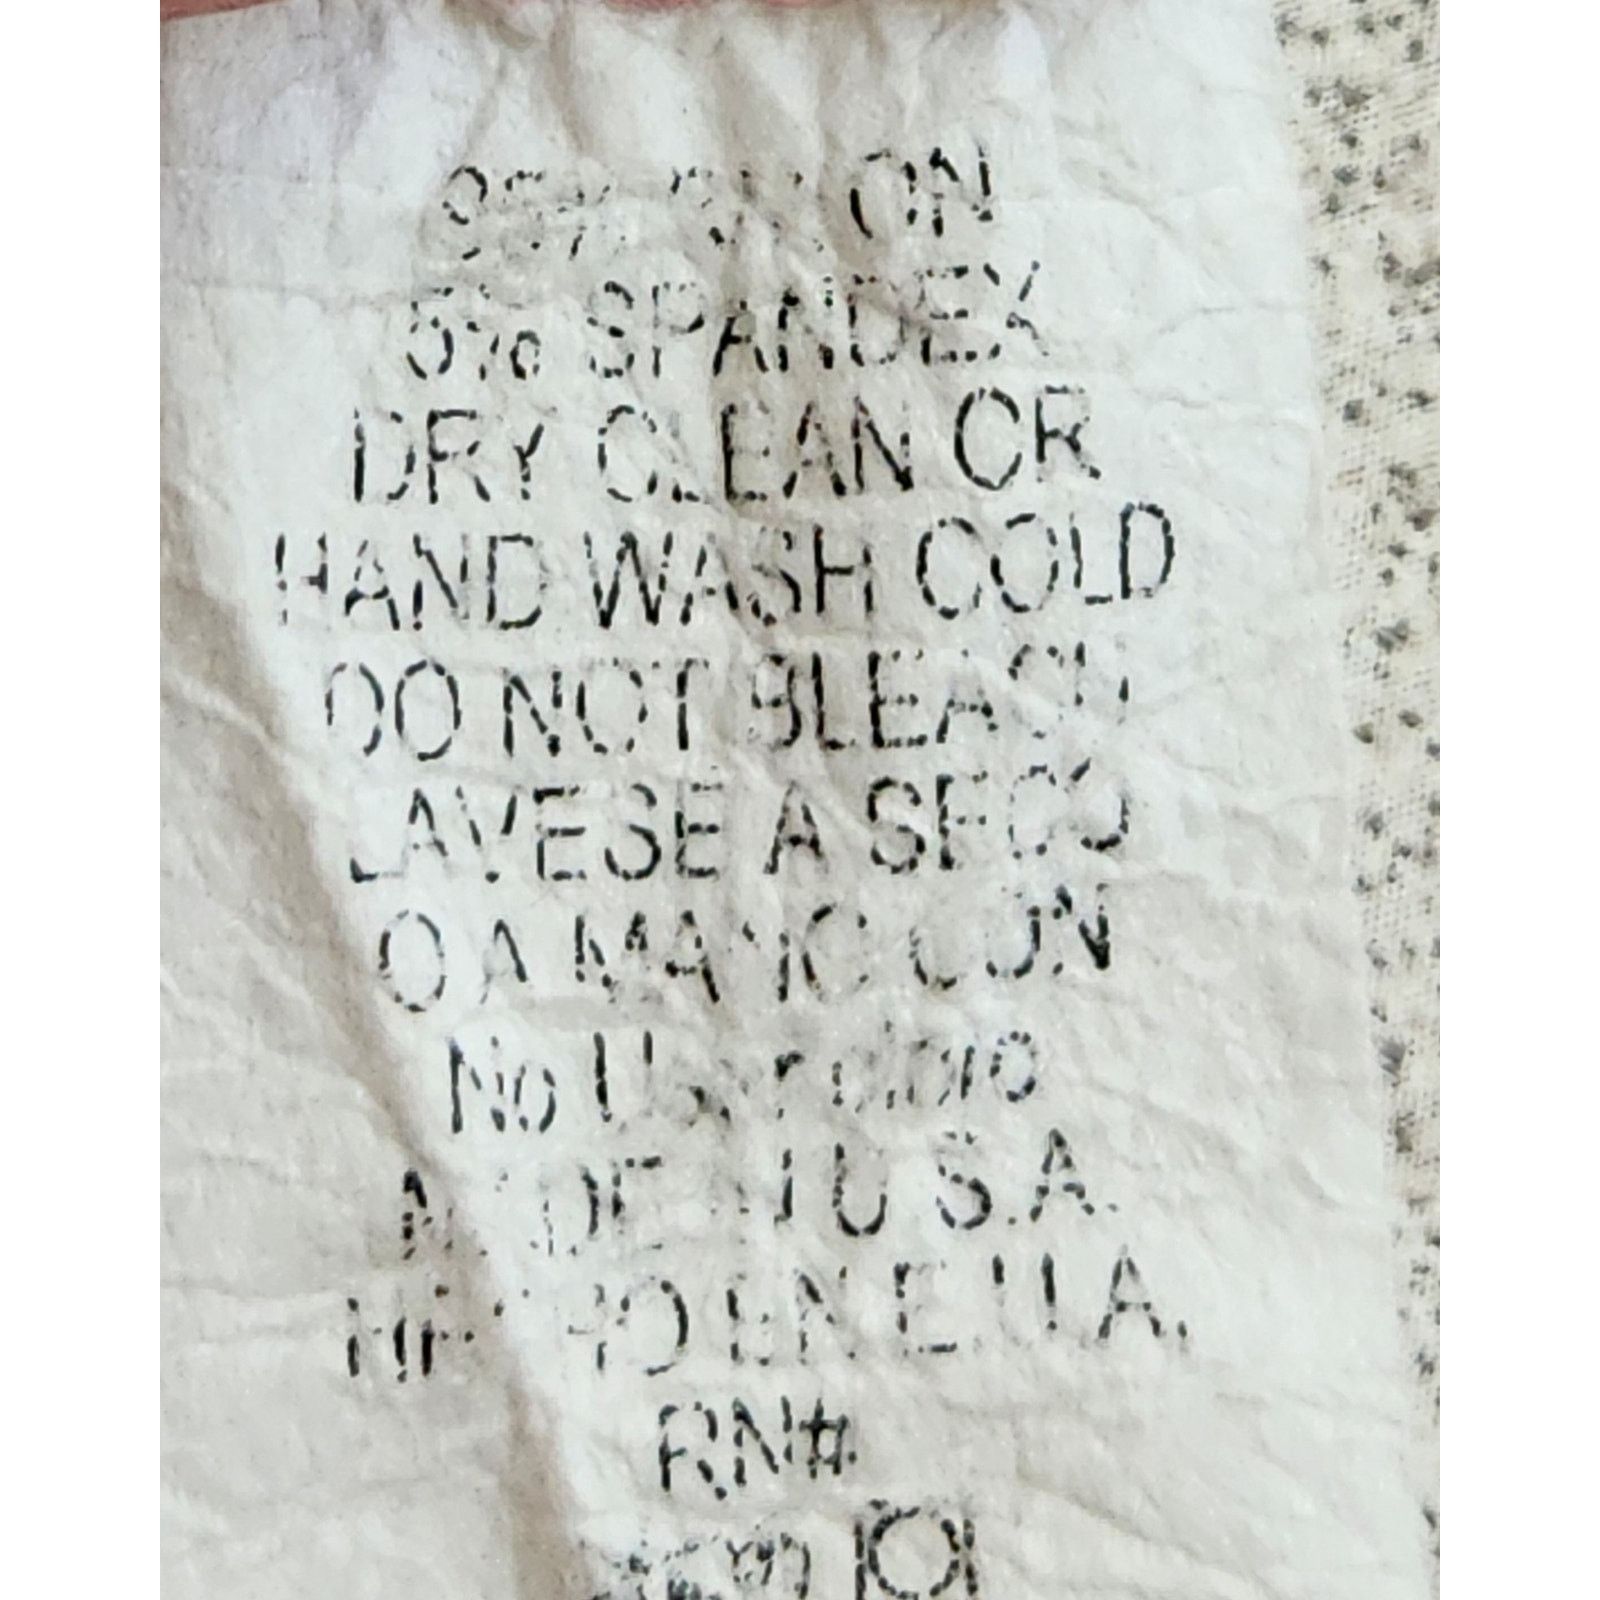 95% RAYON
5% SPANDEX
DRY CLEAN OR
HAND WASH COLD
DO NOT BLEACH
LAVESE A SECO
O A MANO CON
No Usar
MADE IN U.S.A.
HECHO EN E.U.A.
RN#